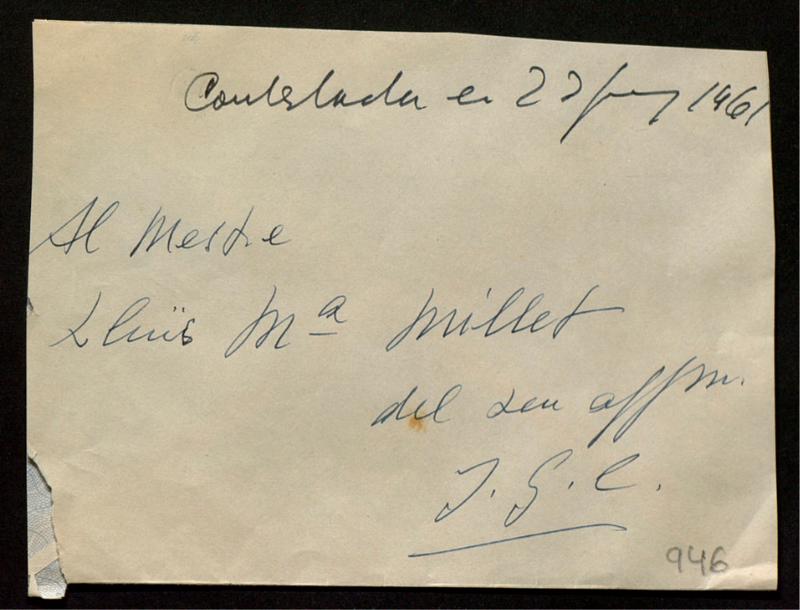 Contestada en 22 juny 1961
Al Mestre
Lluïs Mª Millet
del seu affm.
J. G. C.
946